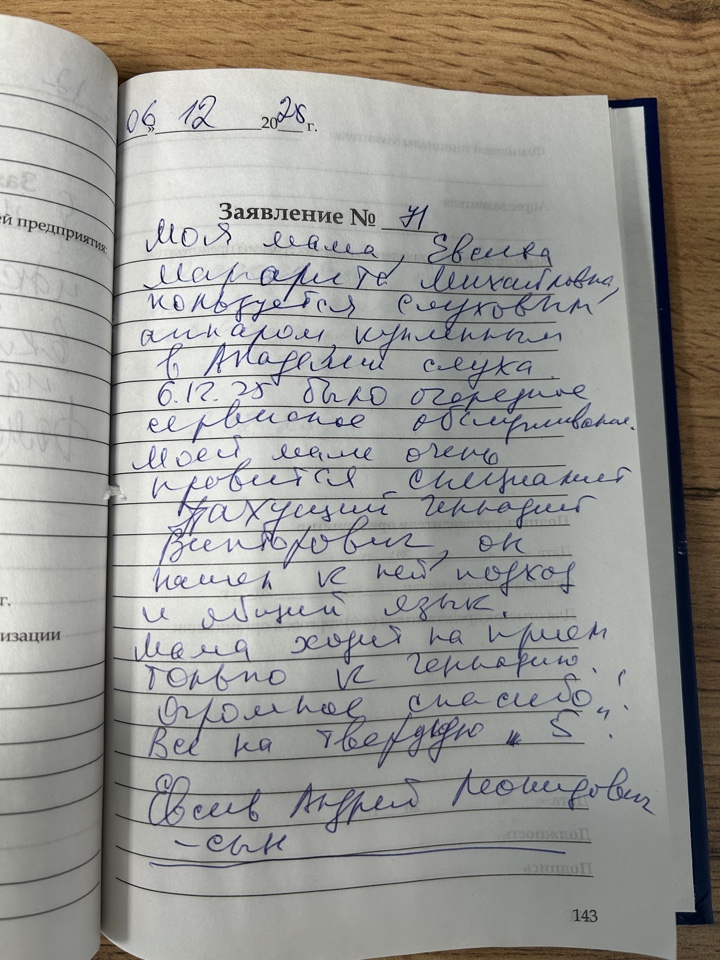 06 » 12 2025 г.
Заявление № 71
Моя мама,
Маргарита Михайловна,
пользуется слуховым
аппаром, купленным
в Академии слуха.
6.12.25 было очередное
сервисное обслуживание.
Моей маме очень
нравится специалист
Пахущий Геннадий
Викторович, он
нашел к ней подход
и общий язык.
Мама ходит на прием
только к Геннадию.
Огромное спасибо!
Все на твердую „5"!
Андрей Леонидович
- сын
143
ей предприятия:
г.
изации